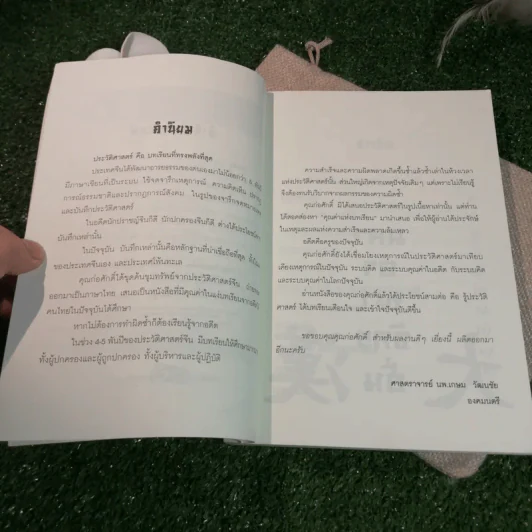 คำนิยม
ประวัติศาสตร์ คือ บทเรียนที่ทรงพลังที่สุด
ประเทศจีนได้พัฒนาอารยธรรมของตนเองมาไม่น้อยกว่า
มีภาษาเขียนที่เป็นระบบ ใช้จดจารึกเหตุการณ์ ความคิดเห็น
การณ์ธรรมชาติและปรากฏการณ์สังคม ในรูปของจารึกจดหมายเหตุ
และบันทึกประวัติศาสตร์
ในอดีตนักปราชญ์จีนก็ดี นักปกครองจีนก็ดี ต่างได้ประโยชน์
บันทึกเหล่านั้น
ในปัจจุบัน บันทึกเหล่านี้คือหลักฐานที่น่าเชื่อถือที่สุด
ของประเทศจีนเอง และประเทศใกล้เคียง
คุณก่อศักดิ์ได้ขุดค้นขุมทรัพย์จากประวัติศาสตร์จีน
ออกมาเป็นภาษาไทย เสนอเป็นหนังสือที่มีคุณค่าในแง่บทเรียนจากอดีต
คนไทยในปัจจุบันได้ศึกษา
หากไม่ต้องการทำผิดซ้ำก็ต้องเรียนรู้จากอดีต
ในช่วง 4-5 พันปีของประวัติศาสตร์จีน มีบทเรียนให้ศึกษามากมาย
ทั้งผู้ปกครองและผู้ถูกปกครอง ทั้งผู้บริหารและผู้ปฏิบัติ
ความสำเร็จและความผิดพลาดเกิดขึ้นซ้ำแล้วซ้ำเล่าในห้วงเวลา
แห่งประวัติศาสตร์นั้น ส่วนใหญ่เกิดจากเหตุปัจจัยเดิมๆ แต่เพราะไม่เรียนรู้
จึงต้องทนรับวิบากจากผลกรรมของความผิดซ้ำ
คุณก่อศักดิ์ มิได้เสนอประวัติศาสตร์ในรูปเนื้อหาเท่านั้น แต่ท่าน
ได้สอดส่องหา "คุณค่าแห่งบทเรียน" มานำเสนอ เพื่อให้ผู้อ่านได้ประจักษ์
ในเหตุและผลแห่งความสำเร็จและความล้มเหลว
อดีตคือครูของปัจจุบัน
คุณก่อศักดิ์ยังได้เชื่อมโยงเหตุการณ์ในประวัติศาสตร์มาเทียบ
เคียงเหตุการณ์ในปัจจุบัน ระบบคิด และระบบคุณค่าในอดีต กับระบบคิด
และระบบคุณค่าในโลกปัจจุบัน
อ่านหนังสือของคุณก่อศักดิ์แล้วได้ประโยชน์สามต่อ คือ รู้ประวัติ
ศาสตร์ ได้บทเรียนเตือนใจ และเข้าใจปัจจุบันดีขึ้น
ขอขอบคุณคุณก่อศักดิ์ สำหรับผลงานดีๆ เยี่ยงนี้ ผลิตออกมา
อีกนะครับ
ศาสตราจารย์ นพ.เกษม วัฒนชัย
องคมนตรี